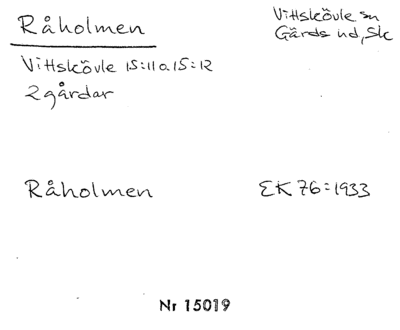 Råholmen
Vittskövle sn
Gärds hd, Sk
Vittskövle 15:11 o. 15:12
2 gårdar
Råholmen
EK 76:1933
Nr 15019